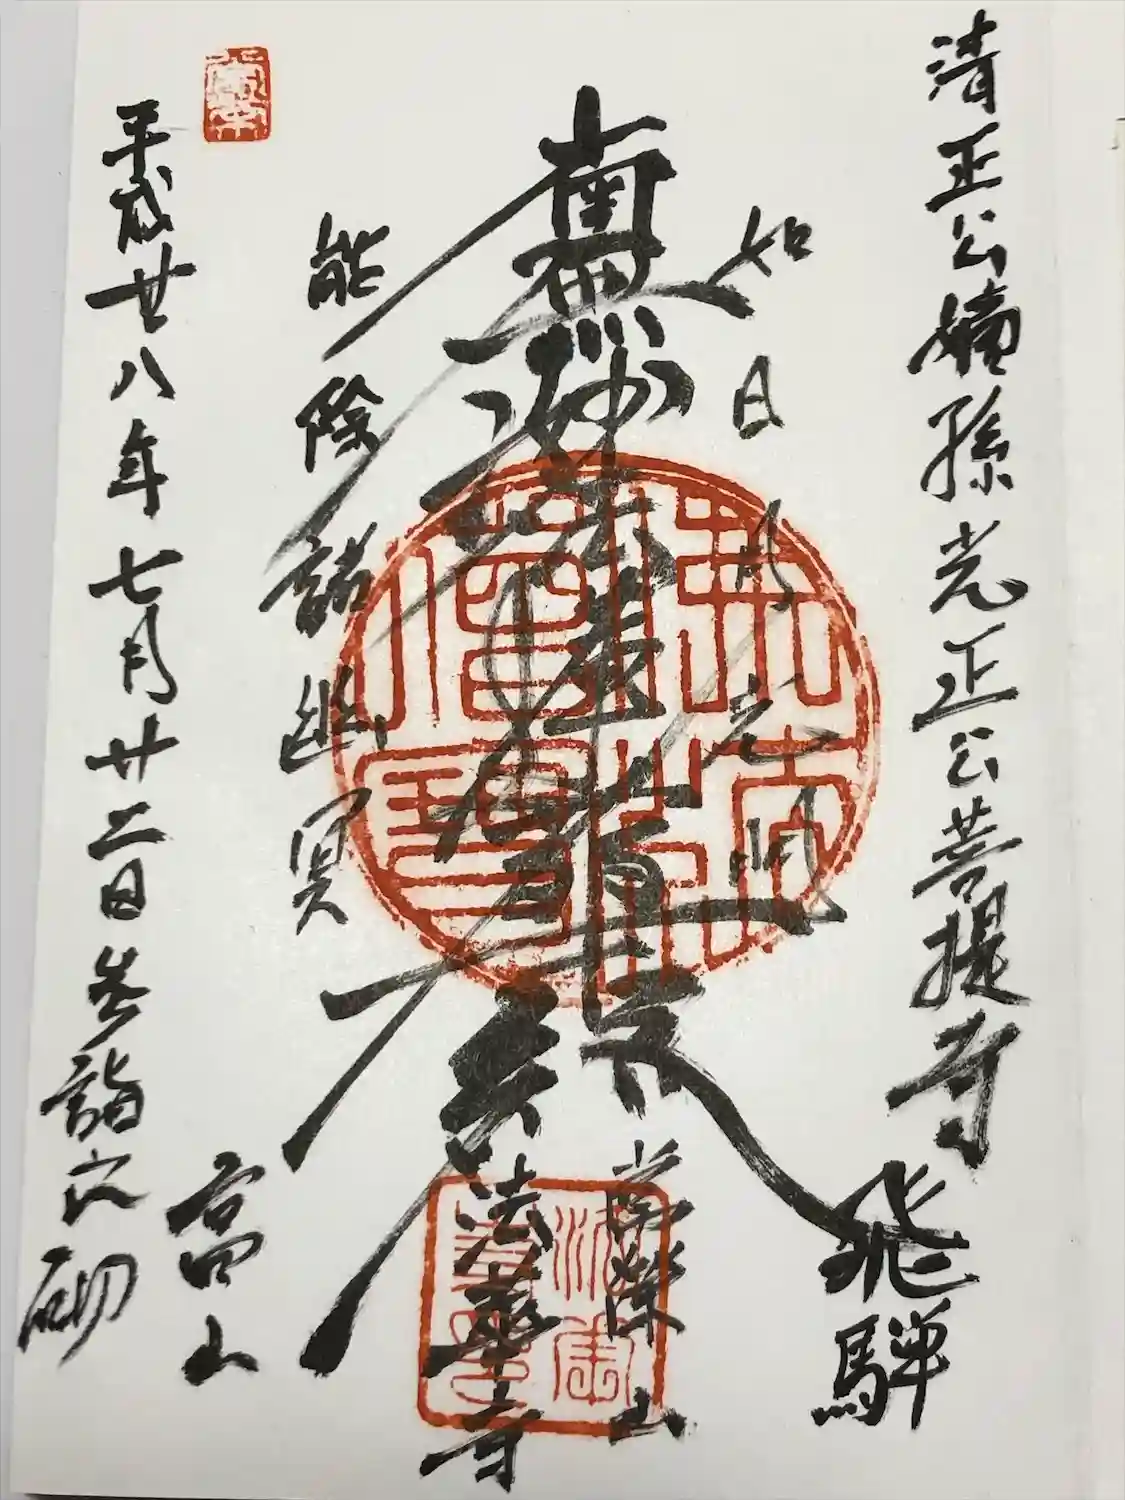 清正公嫡孫光正公菩提寺
飛騨
如日月光明
南無妙法蓮華経
常榮山
法華寺
能除諸幽冥
高山
平成廿八年七月廿二日参詣之砌